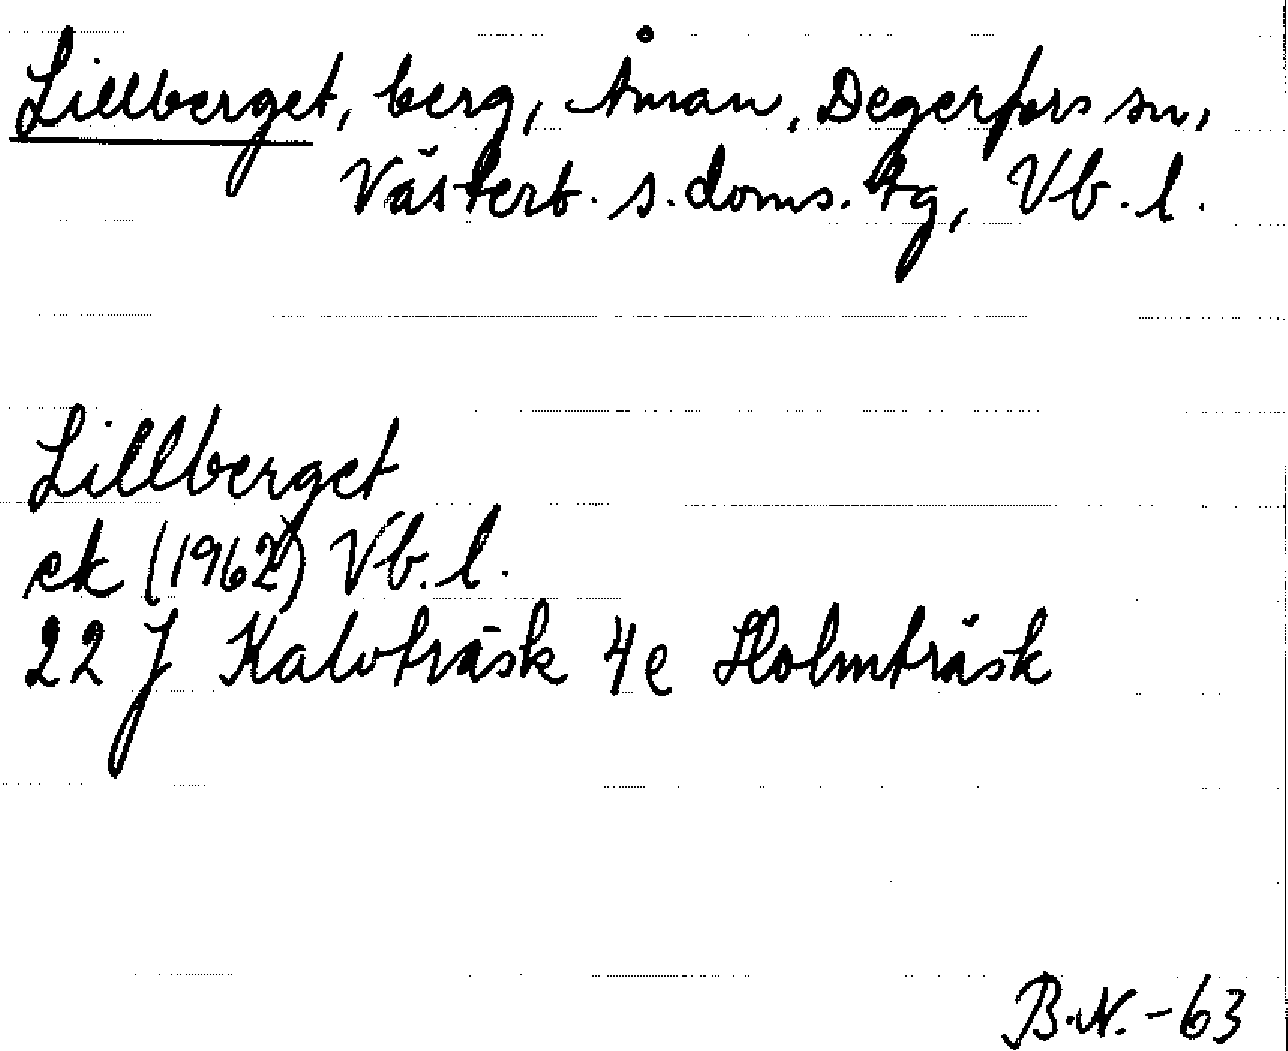 Lillberget, berg, Åman, Degerfors sn,
Västerb. s. doms. tg, Vb. l.
Lillberget
ek (1962) Vb. l.
22 J Kalvträsk 4e Holmträsk
B.N. - 63